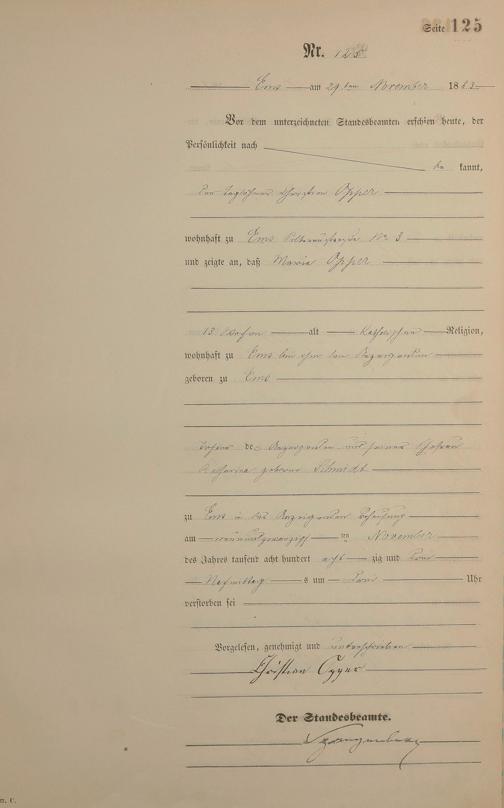 Seite 125
Nr. 125
Ems am 29ten November 1883
Vor dem unterzeichneten Standesbeamten erschien heute, der
Persönlichkeit nach
be kannt,
der Taglöhner Christian Opper
wohnhaft zu Ems Nr 3
und zeigte an, daß Maria Opper
13 Wochen alt Katholischer Religion,
wohnhaft zu Ems bei dem Anzeigenden
geboren zu Ems
Tochter des Anzeigenden und seiner Ehefrau
Katharina geborene Schmidt
zu Ems in des Anzeigenden Behausung
am neunundzwanzigsten November
des Jahres tausend acht hundert acht zig und drei
Nachmittag s um Uhr
verstorben sei
Vorgelesen, genehmigt und unterschrieben
Christian Opper
Der Standesbeamte.